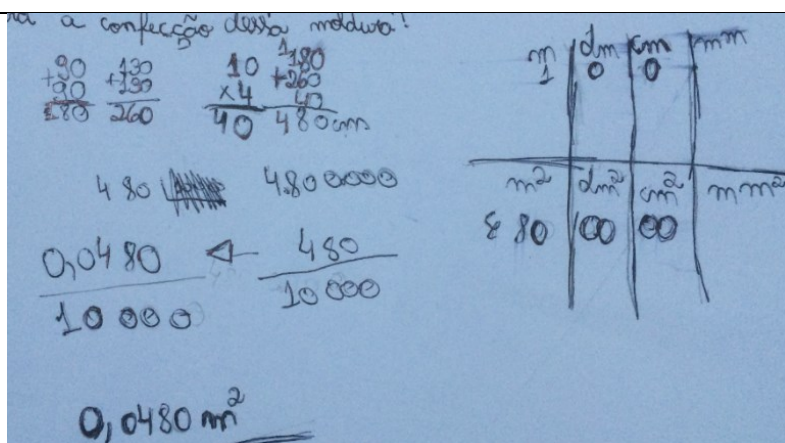 a confecção dessa moldura?
90 130 10 180
+90 +130 ×4 +260
180 260 40 40
480cm
480 4.800000
0,0480 480
10 000 10 000
0,0480 m²
m dm cm mm
1 0 0
m² dm² cm² mm²
80 00 00